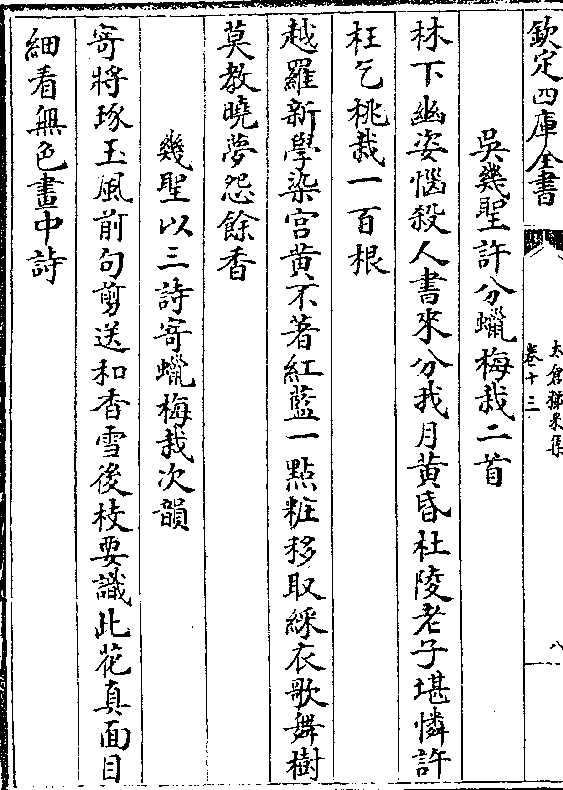 欽定四庫全書
太倉稊米集
卷十三
八
吳幾聖許分蠟梅栽二首
林下幽姿惱殺人書來分我月黃昏杜陵老子堪憐許
枉乞桃栽一百根
越羅新學染宫黃不著紅藍一點粧移取綵衣歌舞樹
莫教曉夢怨餘香
幾聖以三詩寄蠟梅栽次韻
寄將琢玉風前句剪送和香雪後枝要識此花真面目
細看無色畫中詩